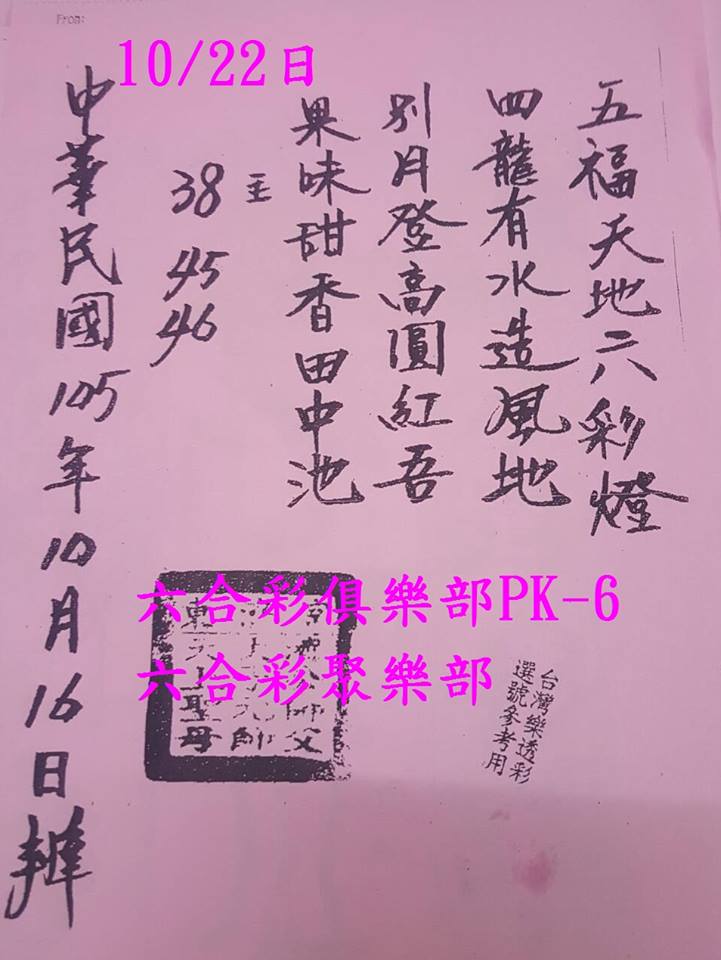 From:
10/22日
五福天地六彩燈
四龍有水造風地
別月登高圓紅吾
果味甜香田中池
主
38
45
46
中華民國105年10月16日
六合彩俱樂部PK-6
六合彩聚樂部
台灣樂透彩
選號參考用